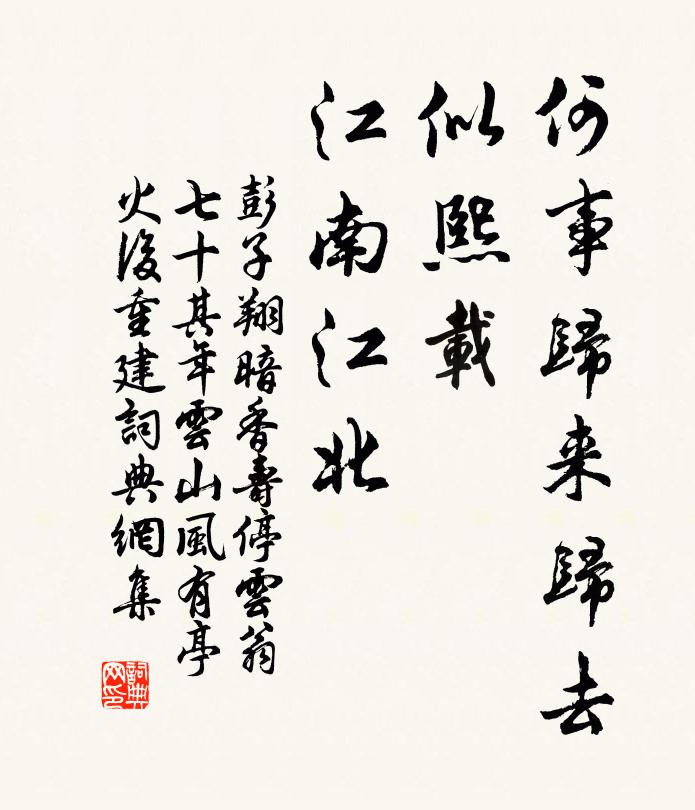 何事歸来歸去
似熙載
江南江北
彭子翔暗香壽停雲翁
七十其年雲山風有亭
火後重建詞典網集
詞典网印